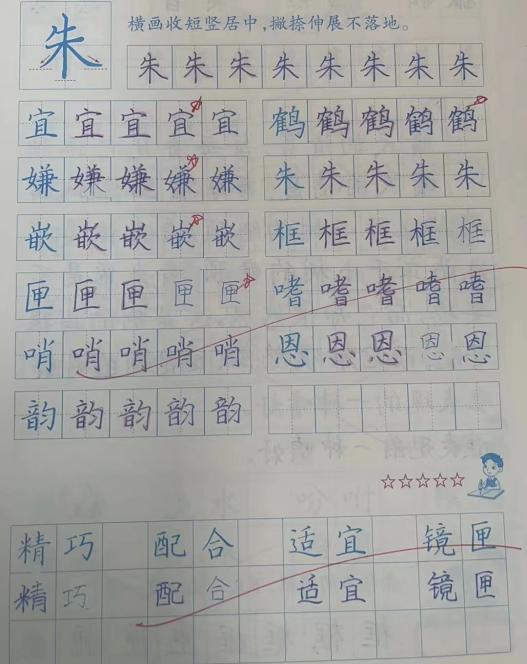 朱
横画收短竖居中,撇捺伸展不落地。
朱朱朱朱朱朱朱朱
宜宜宜宜宜 鹤鹤鹤鹤鹤
嫌嫌嫌嫌嫌 朱朱朱朱朱
嵌嵌嵌嵌嵌 框框框框框
匣匣匣匣匣 嗜嗜嗜嗜嗜
哨哨哨哨哨 恩恩恩恩恩
韵韵韵韵韵
精巧 配合 适宜 镜匣
精巧 配合 适宜 镜匣